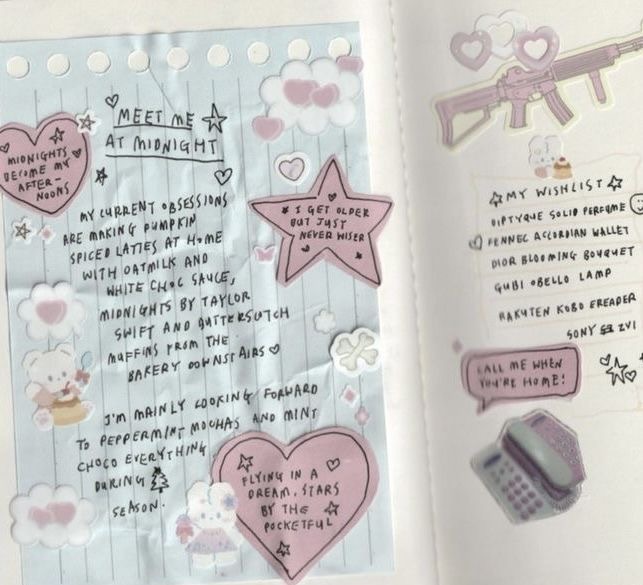 MEET ME
AT MIDNIGHT
MIDNIGHTS
BECOME MY
AFTER-
NOONS
MY CURRENT OBSESSIONS
ARE MAKING PUMPKIN
SPICED LATTES AT HOME
WITH OATMILK AND
WHITE CHOC SAUCE,
MIDNIGHTS BY TAYLOR
SWIFT AND BUTTERSCOTCH
MUFFINS FROM THE
BAKERY DOWNSTAIRS
I GET OLDER
BUT JUST
NEVER WISER
I'M MAINLY LOOKING FORWARD
TO PEPPERMINT MOCHAS AND MINT
CHOCO EVERYTHING
DURING
SEASON.
FLYING IN A
DREAM, STARS
BY THE
POCKETFUL
MY WISHLIST
DIPTYQUE SOLID PERFUME
FENNEC ACCORDIAN WALLET
DIOR BLOOMING BOUQUET
GUBI OBELLO LAMP
RAKUTEN KOBO EREADER
SONY ZV1
CALL ME WHEN
YOU'RE HOME!